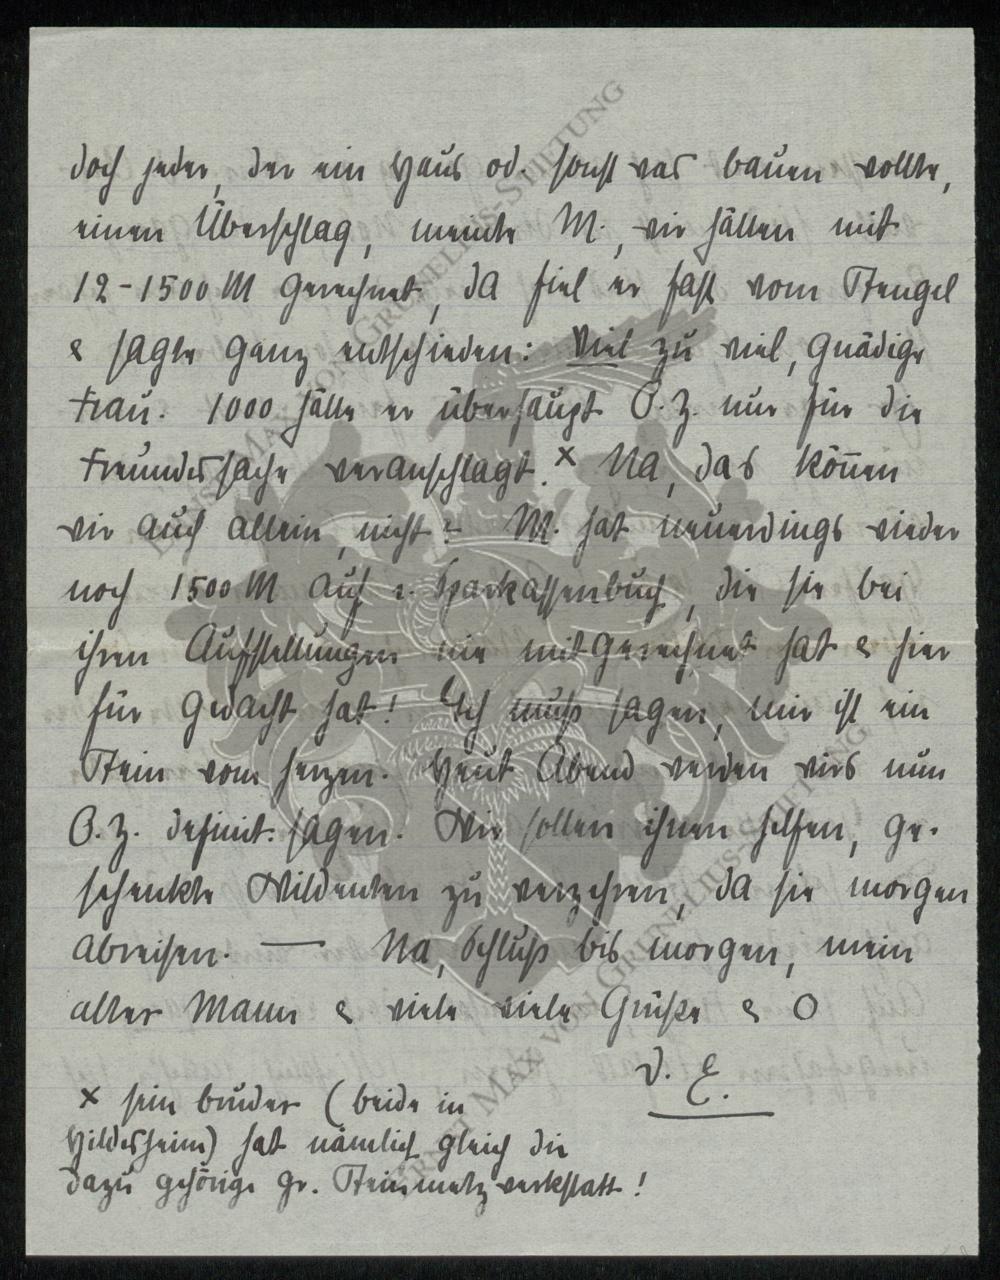 doch jeder, der ein Haus od. sonst was bauen wollte,
einen Überschlag, meinte M., wir hätten mit
12-1500 M gerechnet, da fiel er fast vom Stengel
& sagte ganz entschieden: viel zu viel, gnädige
Frau. 1000 hätte er überhaupt O. Z. nur für die
Freundessache veranschlagt. x Na, das können
wir auch allein, nicht? - M. hat neuerdings wieder
noch 1500 M auf e. Sparkassenbuch, die sie bei
ihren Aufstellungen nie mitgerechnet hat & hier
für gedacht hat! Ich muß sagen, mir ist ein
Stein vom Herzen. Heut Abend werden wirs nun
O. Z. definit. sagen. Wir sollen ihnen helfen, ge-
schenkte Wildenten zu verzehren, da sie morgen
abreisen. — Na, Schluß bis morgen, mein
alter Mann & viele viele Grüße & O
D. E.
x sein Bruder (beide in
Hildesheim) hat nämlich gleich die
dazu gehörige gr. Steinmetzwerkstatt!
ERNST MAX VON GRUNELIUS-STIFTUNG
ERNST MAX VON GRUNELIUS-STIFTUNG